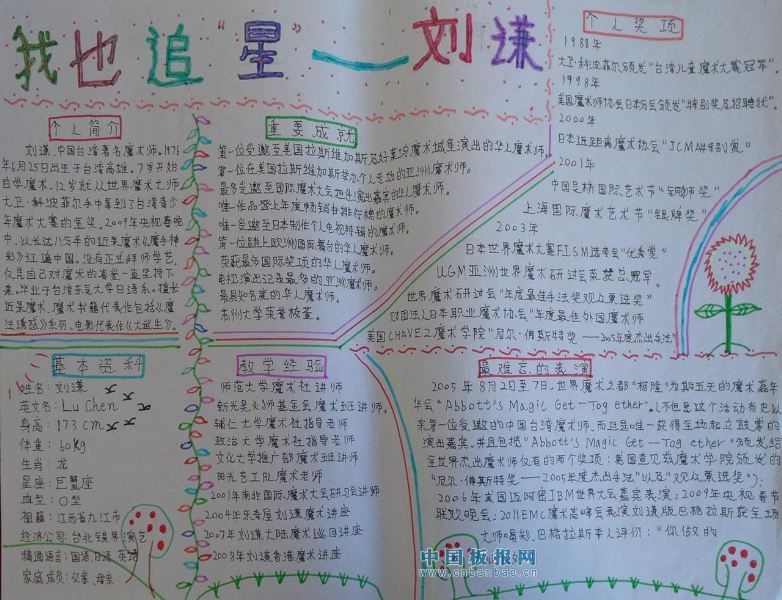 我也追"星"——刘谦
个人简介
刘谦,中国台湾著名魔术师。1976
年6月25日出生于台湾高雄。7岁开始
自学魔术。12岁就从世界魔术大师
大卫·科波菲尔手中拿到了台湾青少
年魔术大赛的金奖。2009年央视春晚
中,以长达八分手的近景魔术《魔手神
彩》红遍中国。没有正式拜师学艺。
仅凭自己对魔术的喜爱一直坚持下
来。毕业于台湾东吴大学日语系。擅长
近景魔术。魔术书籍代表作包括《魔
法诱惑》系列、电影代表作《大武生》。
重要成就
第一位在美国拉斯维加斯举办个人专场的亚洲魔术师。
最多受邀至国际魔术大会担任演出嘉宾的华人魔术师。
唯一作品登上年度畅销书排行榜的魔术师。
唯一受邀至日本制作个人电视特辑的魔术师。
第一位踏上欧洲国际舞台的华人魔术师。
英获最多国际奖项的华人魔术师。
电视演出记录最多的亚洲魔术师。
最具知名度的华人魔术师。
苏州大学荣誉校董。
个人奖项
1988年
大卫·科波菲尔颁发"台湾儿童魔术大赛冠军"
1998年
美国魔术师协会日本分会颁发"特别奖及招聘状"
2000年
日本近距离魔术协会"JCMA特别赏"
2001年
中国吴桥国际艺术节"银狮奖"
上海国际魔术艺术节"银牌奖"
2003年
日本世界魔术大赛FISM选考会"优秀赏"
UGM亚洲世界魔术研讨会英赞总冠军。
世界魔术研讨会"年度最佳手法奖观众票选奖"
财团法人日本职业魔术协会"年度最佳外国魔术师
美国CHAVEZ魔术学院"尼尔·佛斯特奖——2005年度杰出手法
基本资料
姓名:刘谦
英文名:Lu Chen
身高:173cm
体重:60kg
生肖:龙
星座:巨蟹座
血型:O型
祖籍:江西省九江市
经济公司:台北镜界演艺
精通语言:国语、日语、英语
家庭成员:父亲、母亲
教学经验
师范大学魔术社讲师
新光吴火狮基金会魔术班讲师。
辅仁大学魔术社指导老师
政治大学魔术社指导老师
文化大学推广部魔术班讲师
阳光艺工队魔术老师
2001年南非国际魔术大会研习会讲师
2004年乐奇屋刘谦魔术讲座
2007年刘谦大陆巡回讲座
2008年刘谦香港魔术讲座
最难忘的表演
2005年8月2日至7日,世界魔术之都"柯隆"为期五天的"魔术嘉年
华会"Abbott's Magic Get—Together"。(不但是这个活动有史以
来第一位受邀的中国台湾魔术师,而且是唯一获得全场起立鼓掌的
演出嘉宾。并且包揽"Abbott's Magic Get—Together"颁发给
全世界杰出魔术师仅有的两个奖项:美国查见兹魔术学院颁发的
"尼尔·佛斯特奖——2005年度杰出手法"以及"观众票选奖");
2006年美国迈阿密IBM世界大会嘉宾表演;2009年央视春节
联欢晚会;2011EMC魔术高峰会表演刘谦版巴格拉斯获全场
大师喝彩,巴格拉斯本人评价:"你做的
中国板报网
www.cnbanbao.cn